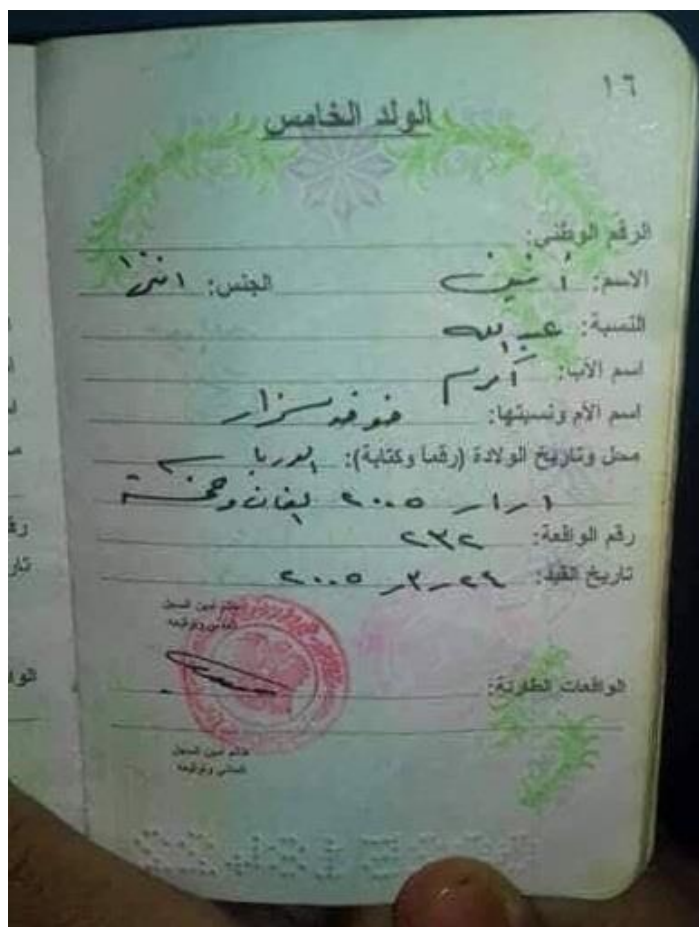 ١٦
الولد الخامس
الرقم الوطني:
الاسم: أفين الجنس: انثى
النسبة: عبد الله
اسم الأب: أكرم
اسم الأم ونسبتها:
محل وتاريخ الولادة (رقماً وكتابة):
١ ر ١ ر ٢٠٠٥ الفان وخمسة
رقم الواقعة: ٢٣٢
تاريخ القيد: ٢٤ - ٣ ر ٢٠٠٥
خاتم أمين السجل
المدني وتوقيعه
الواقعات الطارئة:
خاتم أمين السجل
المدني وتوقيعه